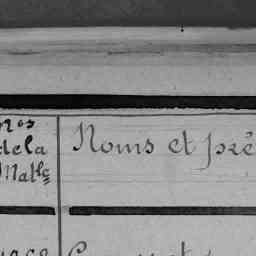 Nos
de la
Matle
Noms et pré